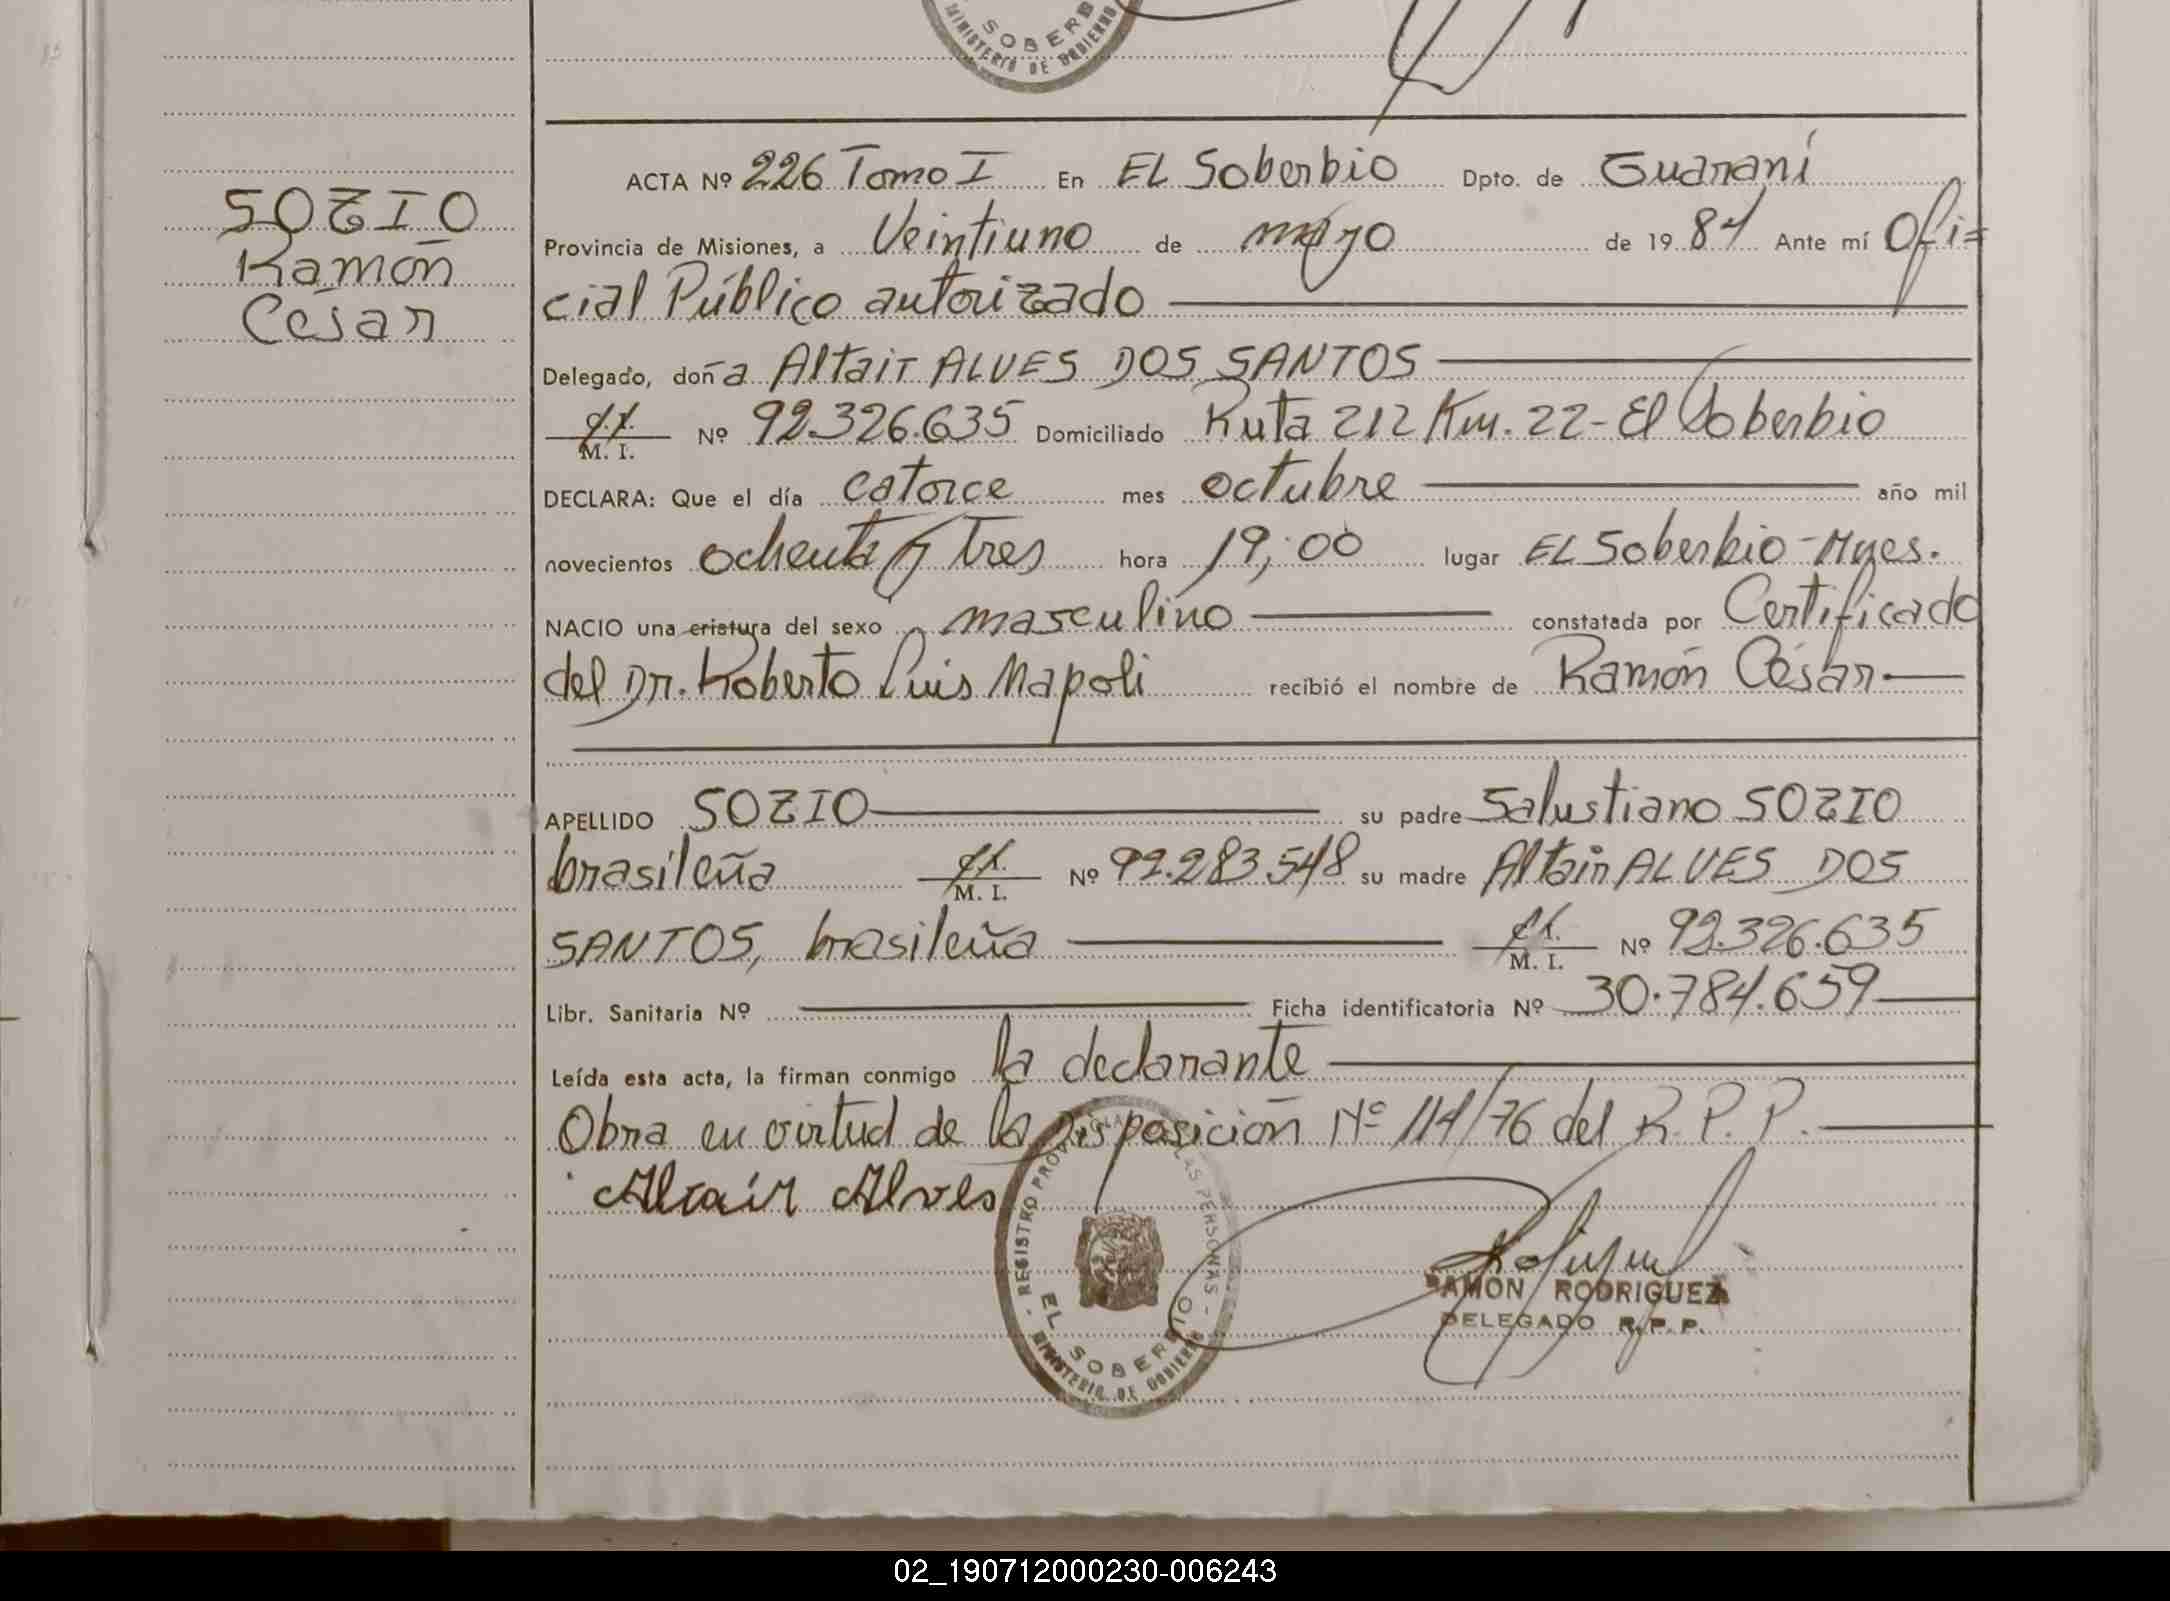 SOBERB
MINISTERIO DE GOBIERNO
SOZIO
Ramón
César
ACTA Nº 226 Tomo I En EL Soberbio Dpto. de Guaraní
Provincia de Misiones, a Veintiuno de mayo de 19 84 Ante mí Ofi=
cial Público autorizado
Delegado, doña Altair ALVES DOS SANTOS
M. I. Nº 92.326.635 Domiciliado Ruta 212 Km. 22-El Soberbio
DECLARA: Que el día catorce mes octubre año mil
novecientos ochenta y tres hora 19,00 lugar EL Soberbio-Mnes.
NACIO una criatura del sexo masculino constatada por Certificado
del Dr. Roberto Luis Napoli recibió el nombre de Ramón César
APELLIDO SOZIO su padre Salustiano SOZIO
brasileña M. I. Nº 92.283.548 su madre Altair ALVES DOS
SANTOS, brasileña M. I. Nº 92.326.635
Libr. Sanitaria Nº Ficha identificatoria Nº 30.784.659
Leída esta acta, la firman conmigo la declarante
Obra en virtud de la Disposición Nº 114/76 del R. P. P.
Altair Alves
REGISTRO PROV DE LAS PERSONAS
EL SOBERBIO
MINISTERIO DE GOBIERNO
RAMON RODRIGUEZ
DELEGADO R.P.P.
02_190712000230-006243